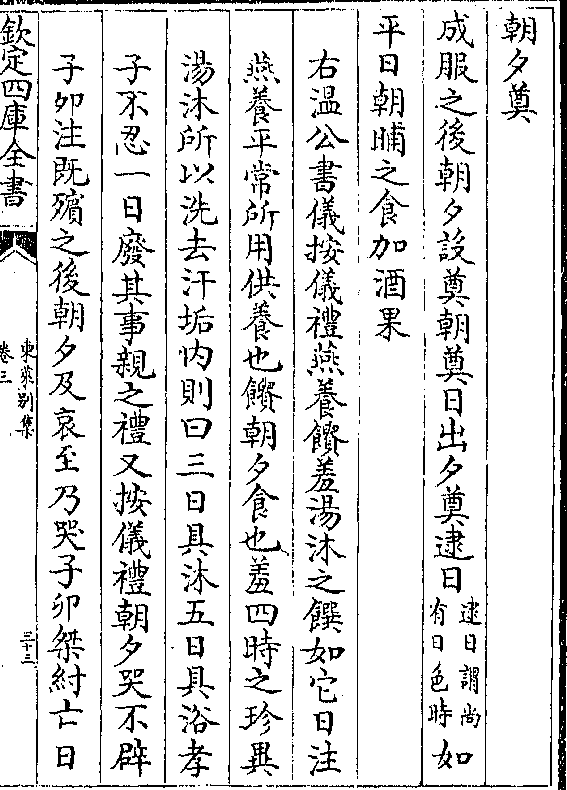 朝夕奠
成服之後朝夕設奠朝奠日出夕奠逮日逮日謂尚有日色時如
平日朝晡之食加酒果
右溫公書儀按儀禮燕養饋羞湯沐之饌如它日注
燕養平常所用供養也饋朝夕食也羞四時之珍異
湯沐所以洗去汗垢内則曰三日具沐五日具浴孝
子不忍一日廢其事親之禮又按儀禮朝夕哭不辟
子夘注既殯之後朝夕及哀至乃哭子卯桀紂亡日
欽定四庫全書
東萊别集
卷三
三十三